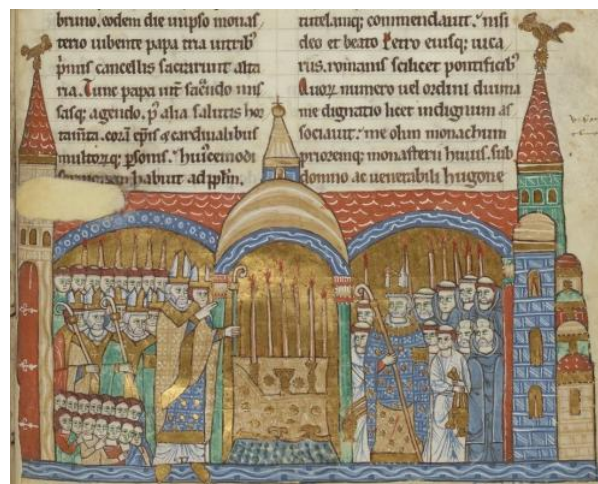 bruno. eodem die in ipso monas
terio iubente papa tria uittib᷒
p̃mis cancellis sacrarunt alta
ria. Tunc papa int̃ sac̃ndo mis
sasq; agendo. p̃ alia salutis hor
tam̃ta. corã ep̃is ⁊ cardinalibus
multorꝝq; p̃sonis. huic̾emodi
habuit ad pp̃lm.
tutelamq; commendauit. nisi
deo et beato Petro eiusq; uica
riis. romanis scilicet pontificib᷒
Quorꝝ numero uel ordini diuina
me dignatio licet indignum as
sociauit. me olim monachum
prioremq; monasterii huius. sub
domno ac uenerabili hugone